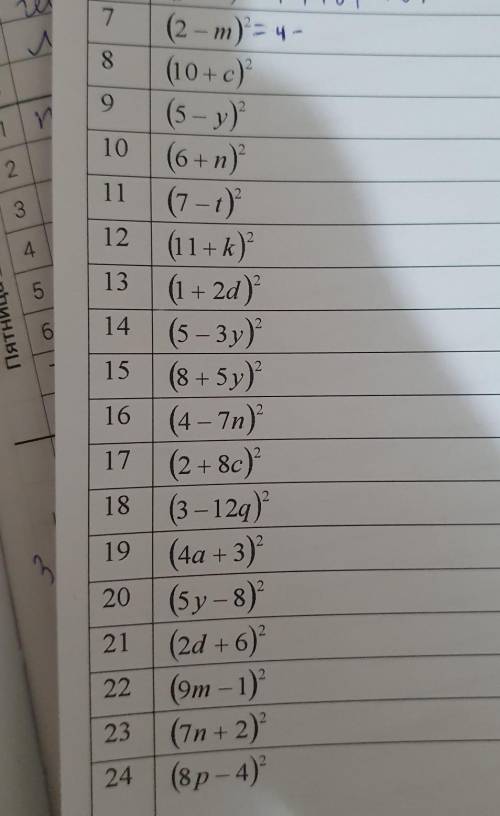 7 (2 – m)² = 4 –
8 (10 + c)²
9 (5 – y)²
10 (6 + n)²
11 (7 – t)²
12 (11 + k)²
13 (1 + 2d)²
14 (5 – 3y)²
15 (8 + 5y)²
16 (4 – 7n)²
17 (2 + 8c)²
18 (3 – 12q)²
19 (4a + 3)²
20 (5y – 8)²
21 (2d + 6)²
22 (9m – 1)²
23 (7n + 2)²
24 (8p – 4)²
Пятница
1
2
3
4
5
6
3